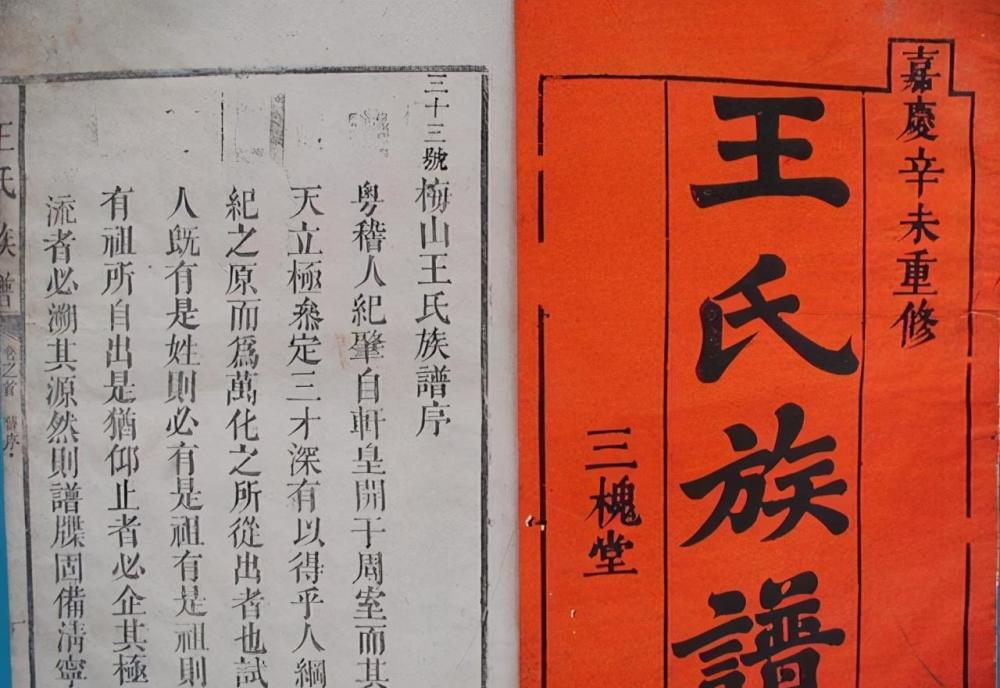 嘉慶辛未重修
王氏族譜
三槐堂
三十三號
梅山王氏族譜序
粤稽人紀肇自軒皇開于周室而其
天立極叅定三才深有以得乎人綱
紀之原而爲萬化之所從出者也試
人旣有是姓則必有是祖有是祖則
有祖所自出是猶仰止者必企其極
流者必溯其源然則譜牒固備清寧
王氏族譜
卷之首
舊序